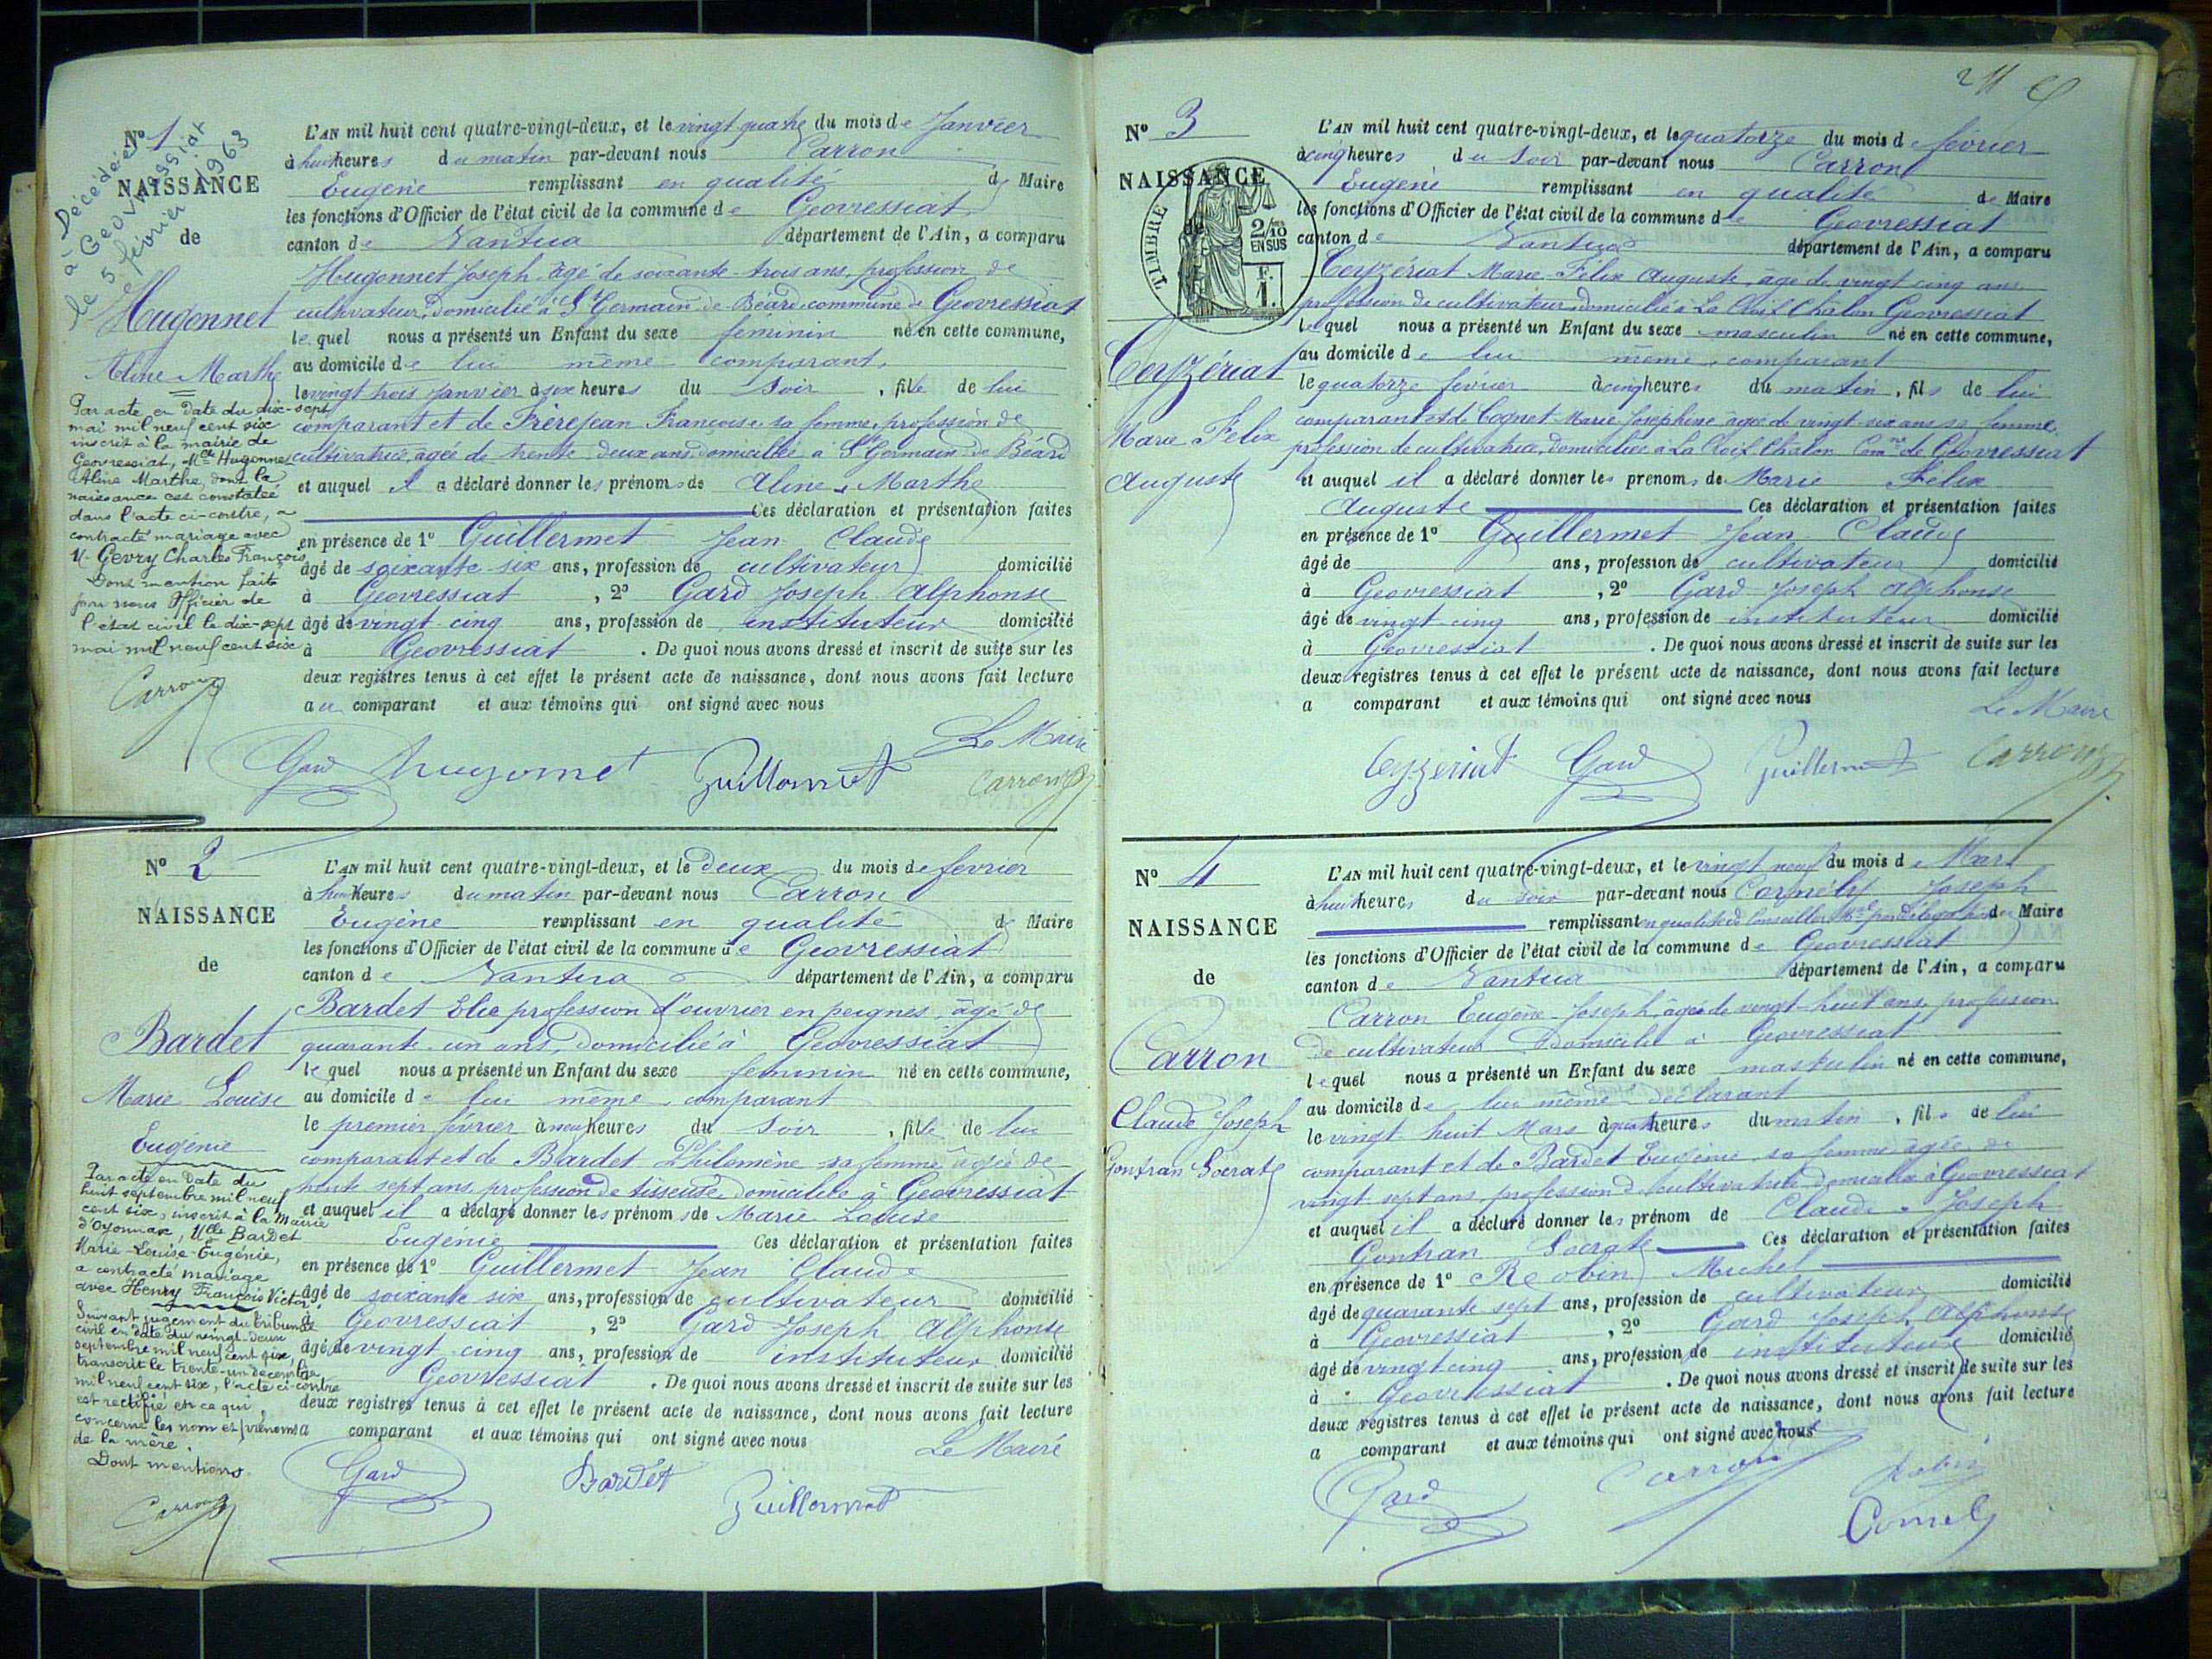 Nº 1
NAISSANCE
de
Hugonnet
Aline Marthe
Décédée
à Geovressiat
le 5 février 1963
Par acte en date du dix-sept
mai mil neuf cent six
inscrit à la mairie de
Geovressiat, Mlle Hugonnet
Aline Marthe, dont la
naissance est constatée
dans l'acte ci-contre, a
contracté mariage avec
M. Gevry Charles François
Dont mention faite
par nous Officier de
l'état civil le dix-sept
mai mil neuf cent six
Carron
L'AN mil huit cent quatre-vingt-deux, et le vingt quatre du mois de Janvier
à huit heures du matin par-devant nous Carron
Eugène remplissant en qualité de Maire
les fonctions d'Officier de l'état civil de la commune de Geovressiat
canton de Nantua département de l'Ain, a comparu
Hugonnet Joseph âgé de soixante-trois ans, profession de
cultivateur, domicilié à St Germain de Béard commune de Geovressiat
lequel nous a présenté un Enfant du sexe feminin né en cette commune,
au domicile de lui même comparant,
le vingt trois Janvier à six heures du Soir, fille de lui
comparant et de Frèrejean Françoise sa femme, profession de
cultivatrice, agée de trente deux ans domiciliée à St Germain de Béard
et auquel il a déclaré donner les prénoms de Aline Marthe
Ces déclaration et présentation faites
en présence de 1º Guillermet Jean Claude
âgé de soixante six ans, profession de cultivateur domicilié
à Geovressiat, 2º Gard Joseph Alphonse
âgé de vingt cinq ans, profession de instituteur domicilié
à Geovressiat. De quoi nous avons dressé et inscrit de suite sur les
deux registres tenus à cet effet le présent acte de naissance, dont nous avons fait lecture
au comparant et aux témoins qui ont signé avec nous
Le Maire
Gard hugonnet Guillermet Carron
Nº 2
NAISSANCE
de
Bardet
Marie Louise
Eugénie
Par acte en date du
huit septembre mil neuf
cent six, inscrit à la Mairie
d'Oyonnax, Mlle Bardet
Marie-Louise-Eugénie,
a contracté mariage
avec Henry François Victor.
Suivant jugement du tribunal
civil en date du vingt-deux
septembre mil neuf cent six,
transcrit le trente-un décembre
mil neuf cent six, l'acte ci-contre
est rectifié en ce qui
concerne les nom et prénoms
de la mère.
Dont mentions.
Carron
L'AN mil huit cent quatre-vingt-deux, et le deux du mois de février
à huit heures du matin par-devant nous Carron
Eugène remplissant en qualité de Maire
les fonctions d'Officier de l'état civil de la commune de Geovressiat
canton de Nantua département de l'Ain, a comparu
Bardet Elie profession d'ouvrier en peignes, âgé de
quarante un ans, domicilié à Geovressiat
lequel nous a présenté un Enfant du sexe feminin né en cette commune,
au domicile de lui même, comparant
le premier février à neuf heures du Soir, fille de lui
comparant et de Bardet Philomène sa femme agée de
trente sept ans, profession de tisseuse, domiciliée à Geovressiat
et auquel il a déclaré donner les prénoms de Marie Louise
Eugénie Ces déclaration et présentation faites
en présence de 1º Guillermet Jean Claude
âgé de soixante six ans, profession de cultivateur domicilié
à Geovressiat, 2º Gard Joseph Alphonse
âgé de vingt cinq ans, profession de instituteur domicilié
Geovressiat. De quoi nous avons dressé et inscrit de suite sur les
deux registres tenus à cet effet le présent acte de naissance, dont nous avons fait lecture
a comparant et aux témoins qui ont signé avec nous
Le Maire
Gard Bardet Guillermet
Nº 3
NAISSANCE
de
TIMBRE
2/10
EN SUS
F.
1.
Ceyzériat
Marie Félix
Auguste
L'AN mil huit cent quatre-vingt-deux, et le quatorze du mois de février
à cinq heures du Soir par-devant nous Carron
Eugène remplissant en qualité de Maire
les fonctions d'Officier de l'état civil de la commune de Geovressiat
canton de Nantua département de l'Ain, a comparu
Ceyzériat Marie Félix Auguste, âgé de vingt cinq ans
profession de cultivateur domicilié à La Croix Châlon Geovressiat
lequel nous a présenté un Enfant du sexe masculin né en cette commune,
au domicile de lui même, comparant
le quatorze février à cinq heures du matin, fils de lui
comparant et de Cognet Marie Josephine agée de vingt-six ans sa femme,
profession de cultivatrice, domiciliée à La Croix Châlon Comne de Geovressiat
et auquel il a déclaré donner les prénoms de Marie Félix
Auguste Ces déclaration et présentation faites
en présence de 1º Guillermet Jean Claude
âgé de ans, profession de cultivateur domicilié
à Geovressiat, 2º Gard Joseph Alphonse
âgé de vingt cinq ans, profession de instituteur domicilié
à Geovressiat. De quoi nous avons dressé et inscrit de suite sur les
deux registres tenus à cet effet le présent acte de naissance, dont nous avons fait lecture
a comparant et aux témoins qui ont signé avec nous
Le Maire
Ceyzeriat Gard Guillermet Carron
Nº 4
NAISSANCE
de
Carron
Claude Joseph
Gontran Socrate
L'AN mil huit cent quatre-vingt-deux, et le vingt neuf du mois de Mars
à huit heures du soir par-devant nous Cornély Joseph
remplissant en qualité de Conseiller Mal par délégation du Maire
les fonctions d'Officier de l'état civil de la commune de Geovressiat
canton de Nantua département de l'Ain, a comparu
Carron Eugène Joseph, âgé de vingt-huit ans, profession
de cultivateur Domicilié à Geovressiat
lequel nous a présenté un Enfant du sexe maskulin né en cette commune,
au domicile de lui même déclarant
le vingt huit Mars à quatre heures du matin, fils de lui
comparant et de Bardet Eugénie sa femme agée de
vingt sept ans, profession de cultivatrice domiciliée à Geovressiat
et auquel il a déclaré donner les prénom de Claude Joseph
Gontran Socrate Ces déclaration et présentation faites
en présence de 1º Robin Michel
âgé de quarante sept ans, profession de cultivateur domicilié
à Geovressiat, 2º Gard Joseph Alphonse
âgé de vingt cinq ans, profession de instituteur domicilié
à Geovressiat. De quoi nous avons dressé et inscrit de suite sur les
deux registres tenus à cet effet le présent acte de naissance, dont nous avons fait lecture
a comparant et aux témoins qui ont signé avec nous
Gard Carron Robin
Cornely